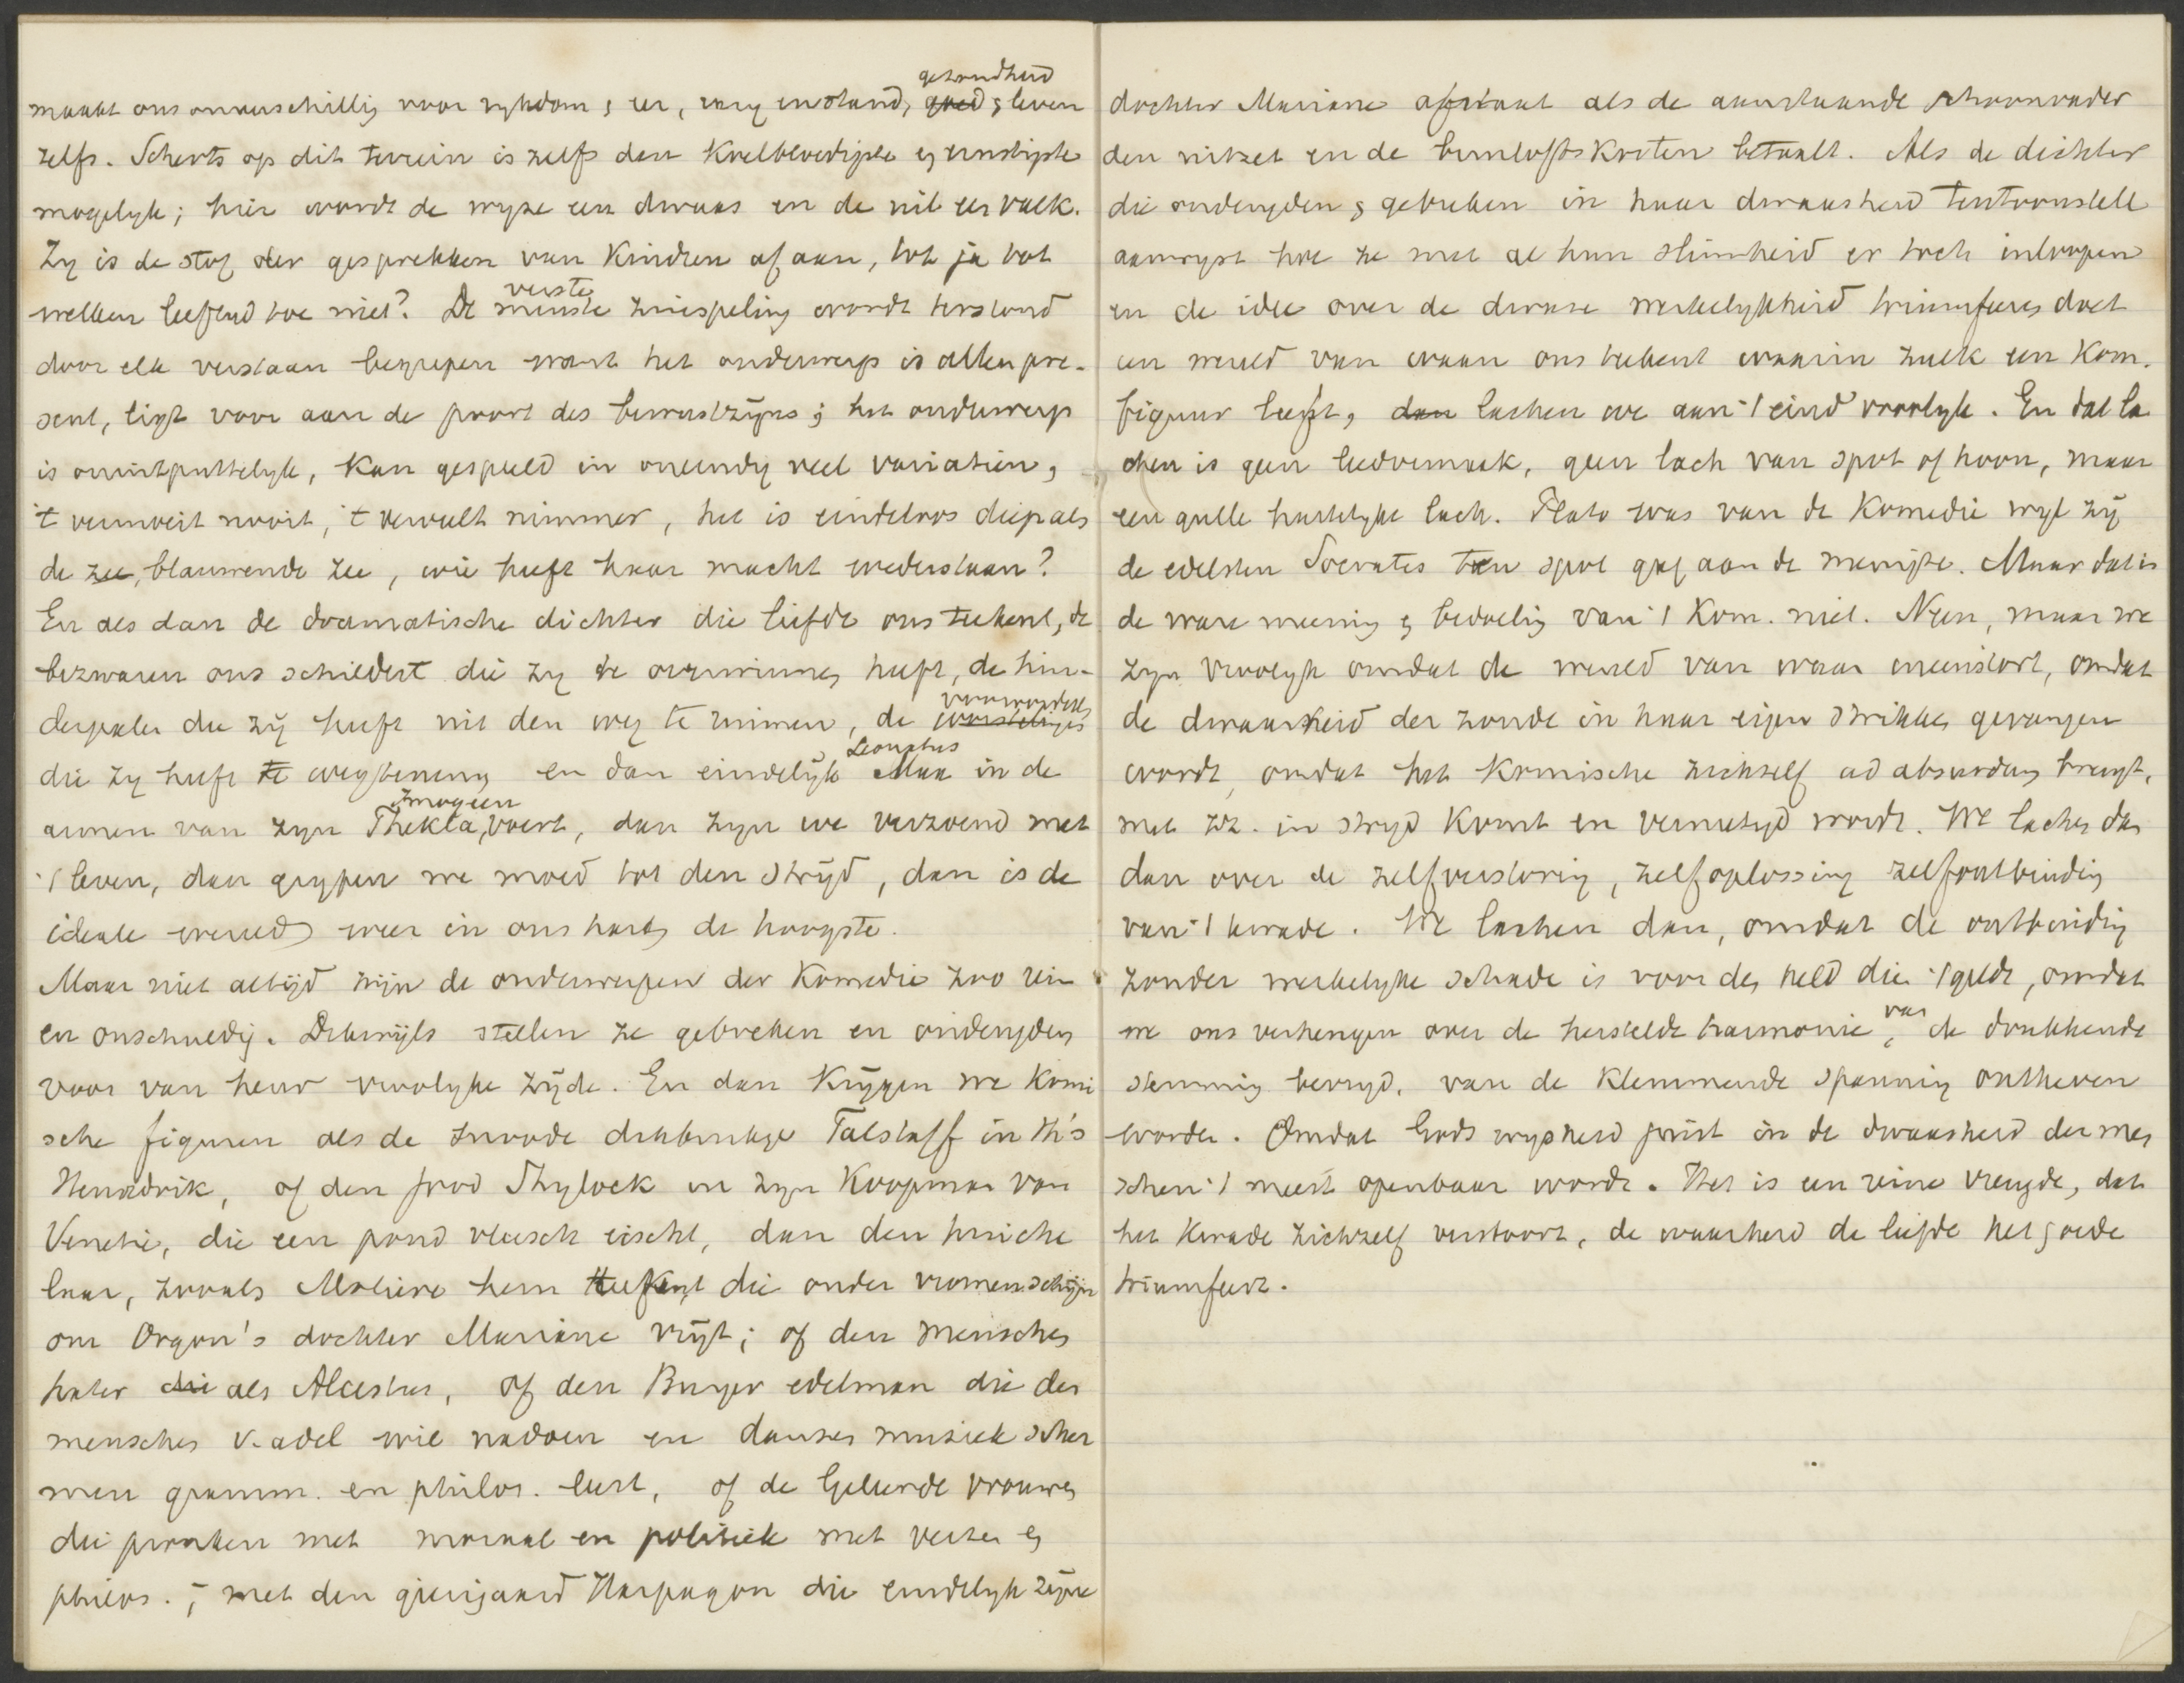 maakt ons onverschillig voor rykdom & eer, rang en stand, gezondheid goed & leven
zelfs. Scherts op dit terrein is zelfs den koelbloedigste en ernstigste
mogelyk; hier wordt de wyze een dwaas en de nil een valk.
Zy is de stof der gesprekken van Kindren af aan, tot ja tot
welken leeftyd toe niet? De verste minste zinspeling wordt terstond
door elk verstaan begrepen want het onderwerp is allen pre-
sent, ligt voor aan de poort des bewustzyns; het onderwerp
is onuitputtelyk, kan gespeeld in oneindig veel variatien,
't vermoeit nooit, 't verveelt nimmer, het is eindeloos diep als
de zee, blauwende zee, wie heeft haar macht wederstaan?
En als dan de dramatische dichter die liefde ons teekent, de
bezwaren ons schildert die zy te overwinnen heeft, de hin-
derpalen die zij heeft uit den weg te ruimen, de vooroordeelen worstelingen
die zy heeft te wegtenemen en dan eindelijk Leonatus Max in de
armen van zyn Imogeen Thekla, voert, dan zyn we verzoend met
't leven, dan grypen we moed tot den strijd, dan is de
ideale wereld weer in ons hart de hoogste.
Maar niet altijd zijn de onderwerpen der Komedie zoo rein
en onschuldig. Dikwijls stellen ze gebreken en ondeugden
voor van heur vroolyke zijde. En dan krijgen we komi
sche figuren als de snoode dikbuikige Falstaff in Sh's
Hendrik, of den jood Shylock in zyn Koopman van
Venetie, die een pond vleesch eischt, dan den huiche
laar, zooals Moliere hem teekent die onder vromen schijn
om Orgon's dochter Mariane vrijt; of den menschen
hater die als Alcestes, of den Burger edelman die den
menschen v. adel wil nadoen en dansen muziek scher
men gramm. en philos. leert, of de Geleerde vrouwen
die pronken met moraal en politiek met verzen en
philos.; met den gierigaard Harpagon die eindelyk zijne
dochter Mariane afstaat als de aanstaande schoonvader
den uitzet en de bruiloftskosten betaalt. Als de dichter
die ondeugden & gebreken in haar dwaasheid tentoonstelt
aanwyst hoe ze met al hun slimheid er toch inloopen
en de idee over de dwaze werkelykheid triumfeeren doet
een wereld van waan ons teekent waarin zulk een Kom.
figuur leeft, dan lachen we aan 't eind vroolyk. En dat la
chen is geen leedvermaak, geen lach van spot of hoon, maar
een gulle hartelyke lach. Plato was van de Komedie wyl zij
de edelsten Socrates ten spot gaf aan de menigte. Maar dat is
de ware meening & bedoeling van 't Kom. niet. Neen, maar we
zyn vroolyk omdat de wereld van waan ineenstort, omdat
de dwaasheid der zonde in haar eigen strikken gevangen
wordt, omdat het komische zichzelf ad absurdum brengt,
met zz. in stryd komt en vernietigd wordt. We lachen dan
dan over de zelfverstoring, zelfoplossing zelfontbinding
van 't kwade. We lachen dan, omdat de ontbinding
zonder werkelyke schade is voor den held die 't geldt, omdat
we ons verheugen over de herstelde harmonie, van de drukkende
stemming bevryd, van de klemmende spanning ontheven
worden. Omdat Gods wysheid juist in de dwaasheid der men
schen 't meest openbaar wordt. Het is een reine vreugde, dat
het kwade zichzelf verstoort, de waarheid de liefde het goede
triumfeert.